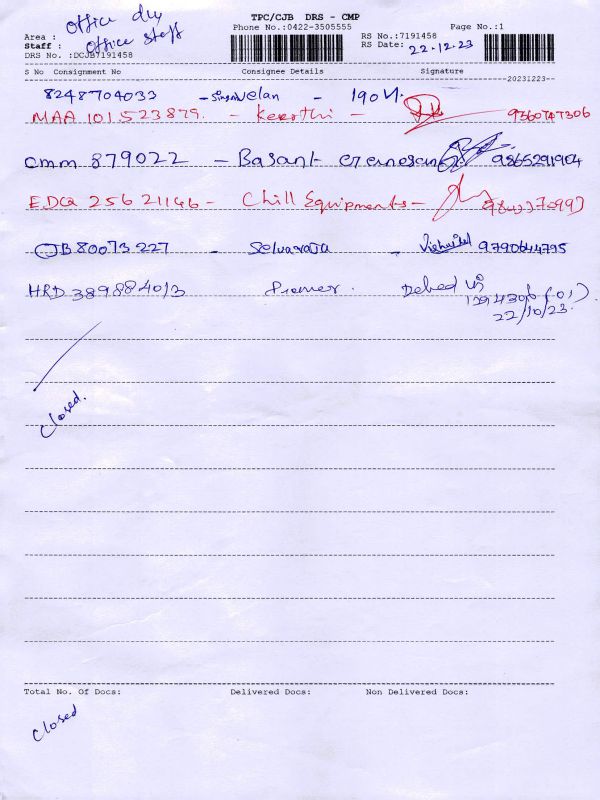 TPC/CJB DRS - CMP
Phone No.:0422-3505555
Page No.:1
Area : Office dly
Staff : Office staff
DRS No. :DCJB7191458
RS No.:7191458
RS Date: 22.12.23
S No Consignment No Consignee Details Signature
20231223
8248704033 - Singavelan - 190
MAA 101523879. - Keerthi - 9360747306
CMM 879022 - Basant 9865291904
EDQ 25621146 - Chill Equipments -
CJB 80073227 - Selvaraja - 9790644795
HRD 389884013 Pioneer.
22/10/23.
Closed.
Total No. Of Docs: Delivered Docs: Non Delivered Docs:
Closed